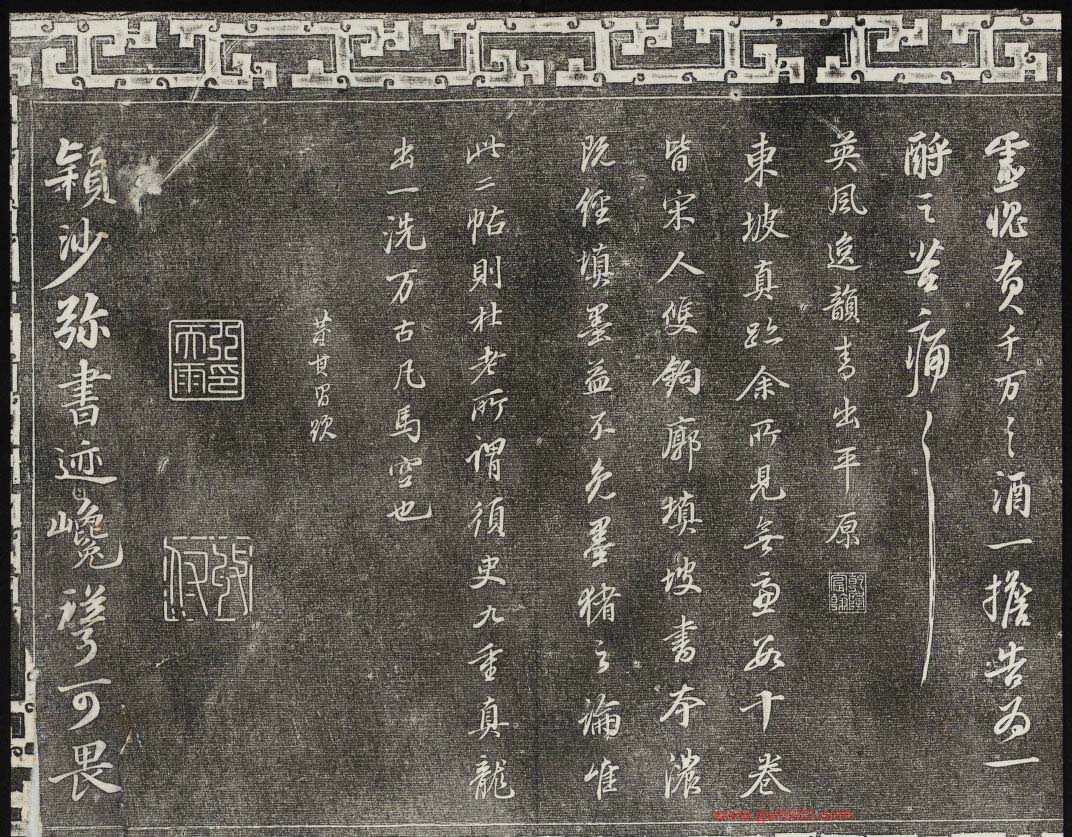 虚愧负千万之酒一擔告为一
酹之苦痛
英风逸韻書出平原
東坡真跡余所見無慮數十卷
皆宋人雙鉤廓填坡書本濃
既經填墨益不免墨猪之論唯
此二帖則杜老所谓須臾九重真龍
出一洗万古凡馬空也
董其昌跋
颖沙弥書迹巉可畏